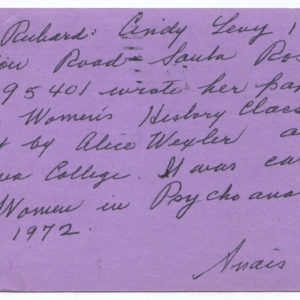 Rubard: Cindy Levy 1
Road - Santa Ros
95401 wrote her pap
Women's History Clas
t by Alice Wexler a
College. It was ca
Women in Psychoana
1972.
Anais